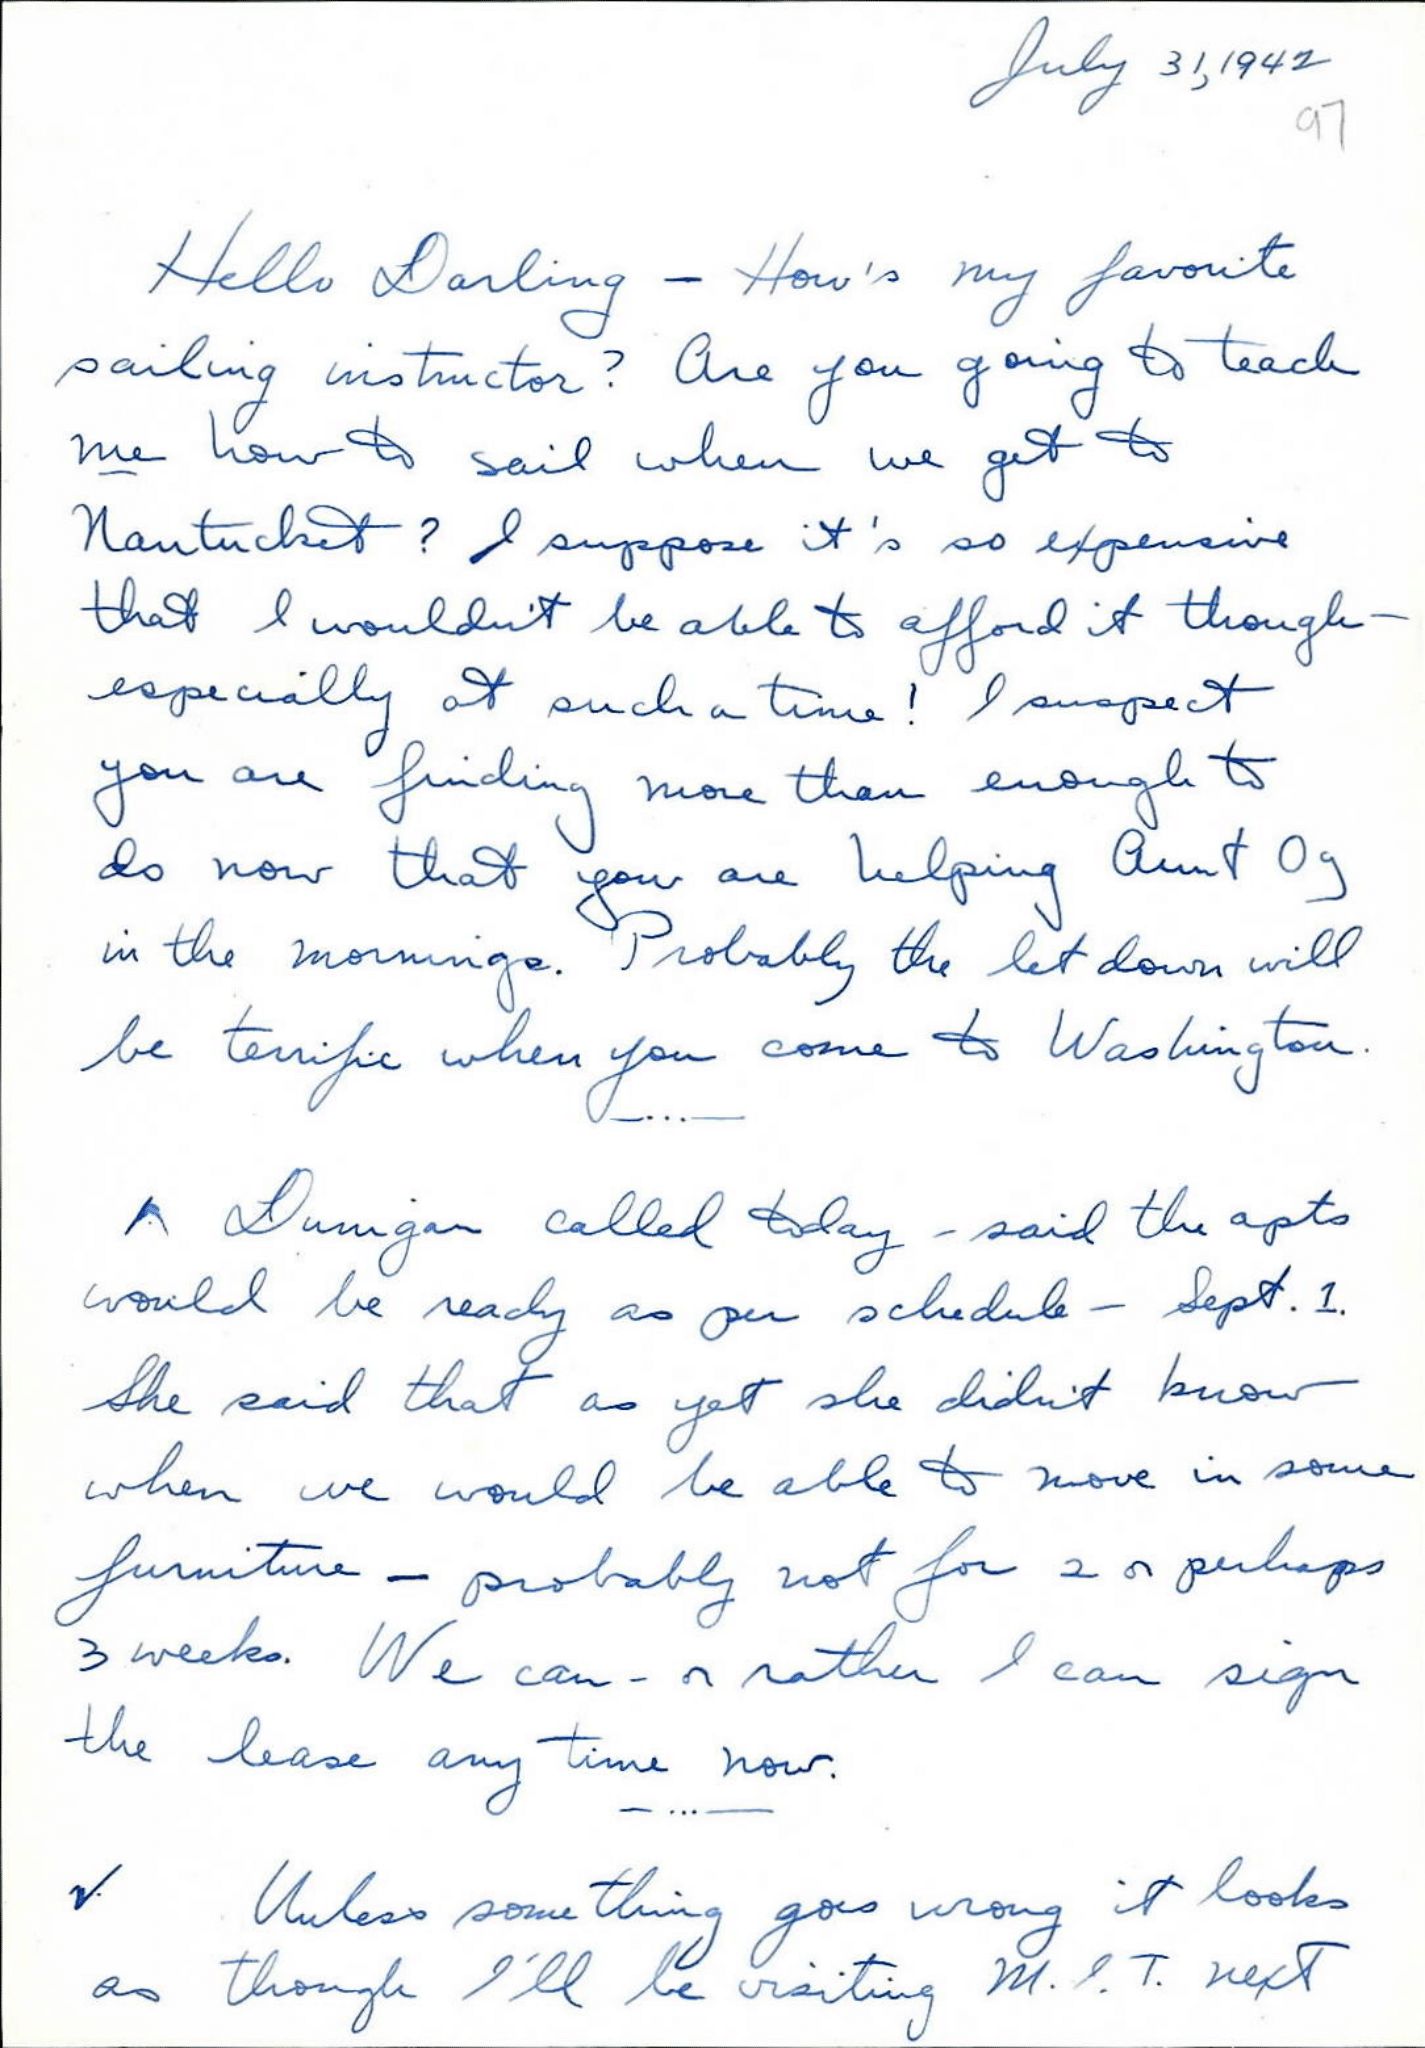 July 31, 1942
97
Hello Darling - How's my favorite
sailing instructor? Are you going to teach
me how to sail when we get to
Nantucket? I suppose it's so expensive
that I wouldn't be able to afford it though -
especially at such a time! I suspect
you are finding more than enough to
do now that you are helping Aunt Og
in the mornings. Probably the let down will
be terrific when you come to Washington.
—...—
Dunigan called today - said the apts
would be ready as per schedule - Sept. 1.
She said that as yet she didn't know
when we would be able to move in some
furniture - probably not for 2 or perhaps
3 weeks. We can - or rather I can sign
the lease any time now.
—...—
Unless something goes wrong it looks
as though I'll be visiting M.I.T. next